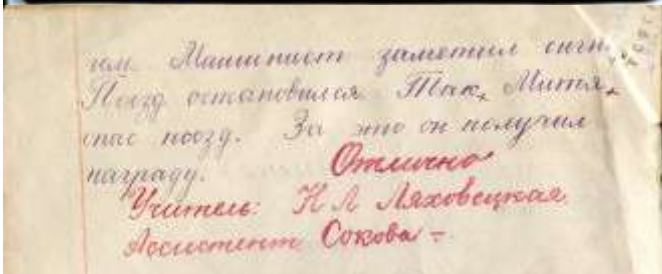 им. Машинист заметил сигн
Поезд остановился. Так, Митя,
спас поезд. За это он получил
награду. Отлично
Учитель: Н Л Ляховецкая
Ассистент Сокова